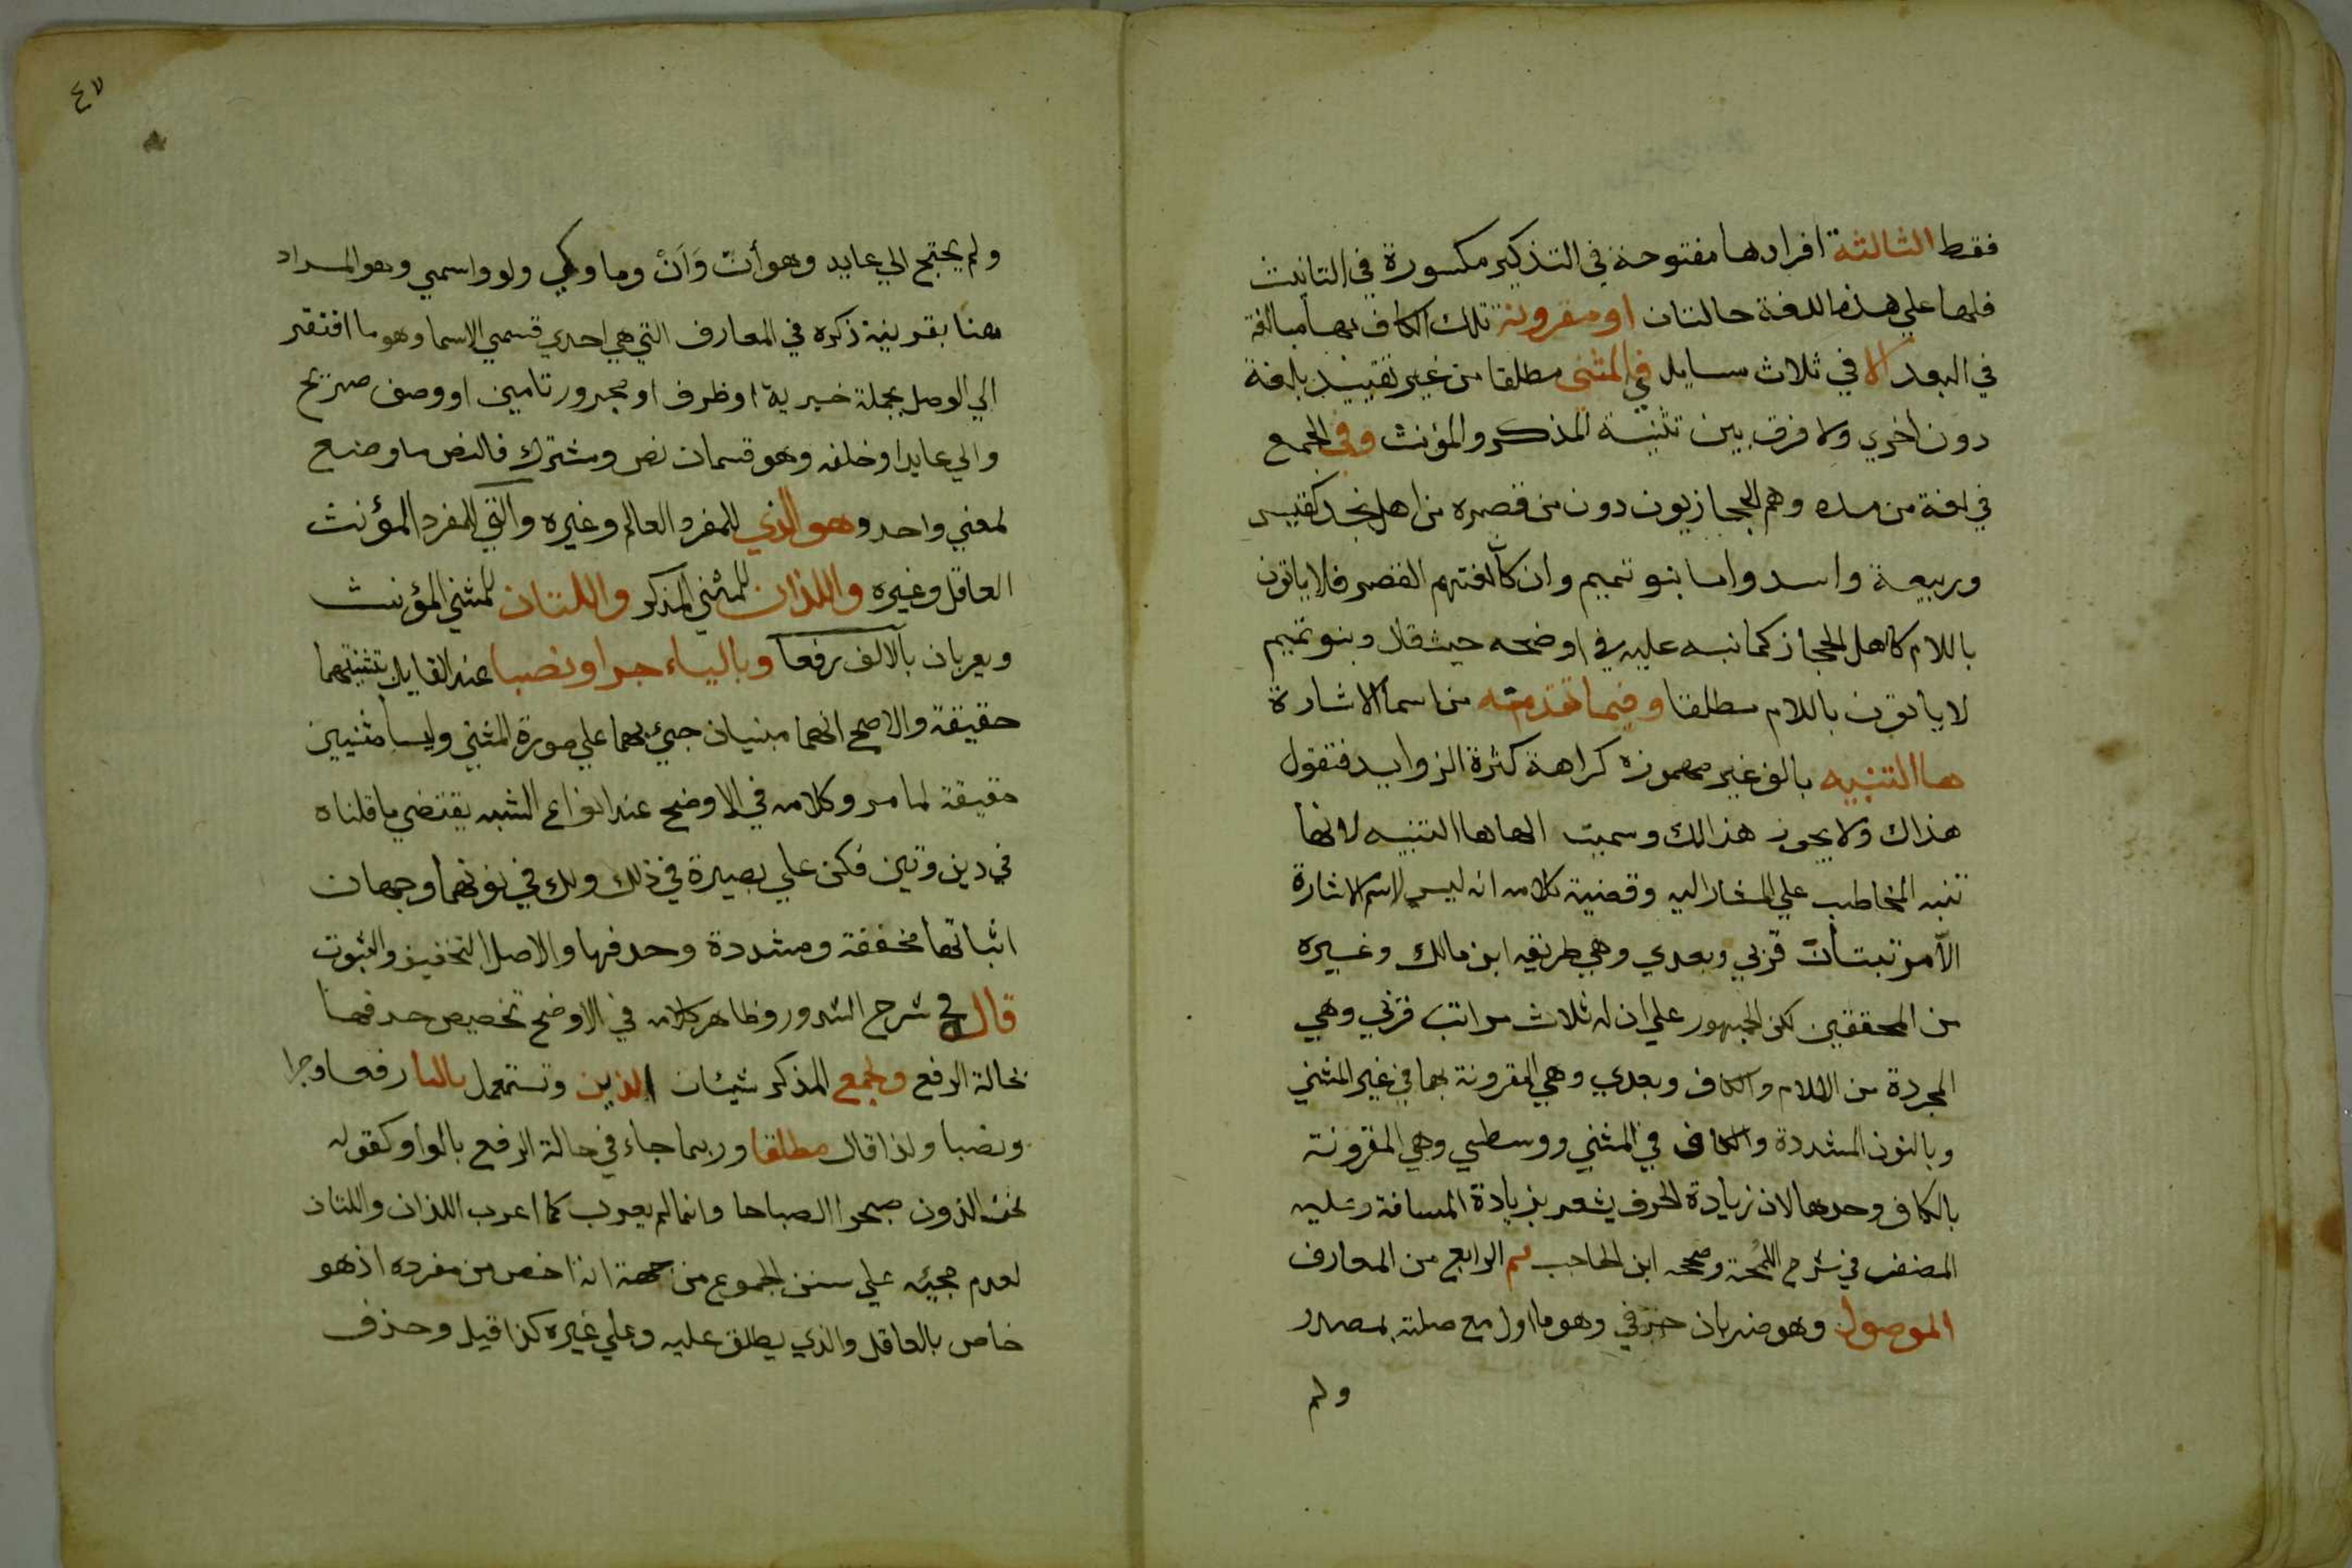 فقط الثالثة افرادها مفتوحة في التذكير مكسورة في التانيث
فلها علي هذه اللغة حالتان او مقرونة تلك الكاف بها مبالغة
في البعد الا في ثلاث مسايل في المثني مطلقا من غير تقييد بلغة
دون اخري ولا فرق بين تثنية المذكر والمؤنث وفي الجمع
في لغة من مده وهم الحجازيون دون من قصره من اهل نجد كقيس
وربيعة واسد واما بنو تميم وان كانت لغتهم القصر فلا ياتون
باللام كاهل الحجاز كما نبه عليه في اوضحه حيث قال وبنو تميم
لا ياتون باللام مطلقا وفيما تقدمته من اسما الاشارة
ها التنبيه بالف غير مهموزه كراهة كثرة الزوايد فتقول
هذاك ولا يجوز هذالك وسميت الها ها التنبيه لانها
تنبه المخاطب علي المشار اليه وقضية كلامه انه ليس لاسم الاشارة
الا مرتبتان قربي وبعدي وهي طريقه ابن مالك وغيره
من المحققين لكن الجمهور علي ان له ثلاث مراتب قربي وهي
المجردة من اللام والكاف وبعدي وهي المقرونة بهما في غير المثني
وبالنون المشددة والكاف في المثني ووسطي وهي المقرونة
بالكاف وحدها لان زيادة الحرف يشعر بزيادة المسافة وعليه
المصنف في شرح اللمحة وصححه ابن الحاجب ثم الرابع من المعارف
الموصول وهو ضربان حرفي وهو ما اول مع صلته بمصدر
ولم
٤٧
ولم يحتج الي عايد وهو أنّ وَأنْ وما وكي ولو واسمي وهو المراد
هنا بقرينة ذكره في المعارف التي هي احدي قسمي الاسما وهو ما افتقر
الي الوصل بجملة خبرية او ظرف او مجرور تامين او وصف صريح
والي عايد او خلفه وهو قسمان نص ومشترك فالنص ما وضع
لمعني واحد وهو الذي للمفرد العالم وغيره والتي للمفرد المؤنث
العاقل وغيره واللذان للمثني المذكر واللتان للمثني المؤنث
ويعربان بالالف رفعا وبالياء جرا ونصبا عند القايل بتثنيتهما
حقيقة والاصح انهما مبنيان جيئ بهما علي صورة المثني وليسا مثنيين
حقيقة لما مر وكلامه في الاوضح عند انواع الشبه يقتضي ما قلناه
في دين وتين فكن علي بصيرة في ذلك ولك في نونهما وجهان
اثباتها مخففة ومشددة وحدفها والاصل التخفيف والثبوت
قال في شرح الشدور وظاهر كلامه في الاوضح تخصيص حدفها
بحالة الرفع ولجمع المذكر شيئان الذين وتستعمل باليا رفعا وجرا
ونصبا ولذا قال مطلقا وربما جاء في حالة الرفع بالواو كقوله
نحن الذون صبحوا الصباحا وانما لم يعرب كما اعرب اللذان واللتان
لعدم مجيئه علي سنن الجموع من جهة انه اخص من مفرده اذ هو
خاص بالعاقل والذي يطلق عليه وعلي غيره كذا قيل وحذف